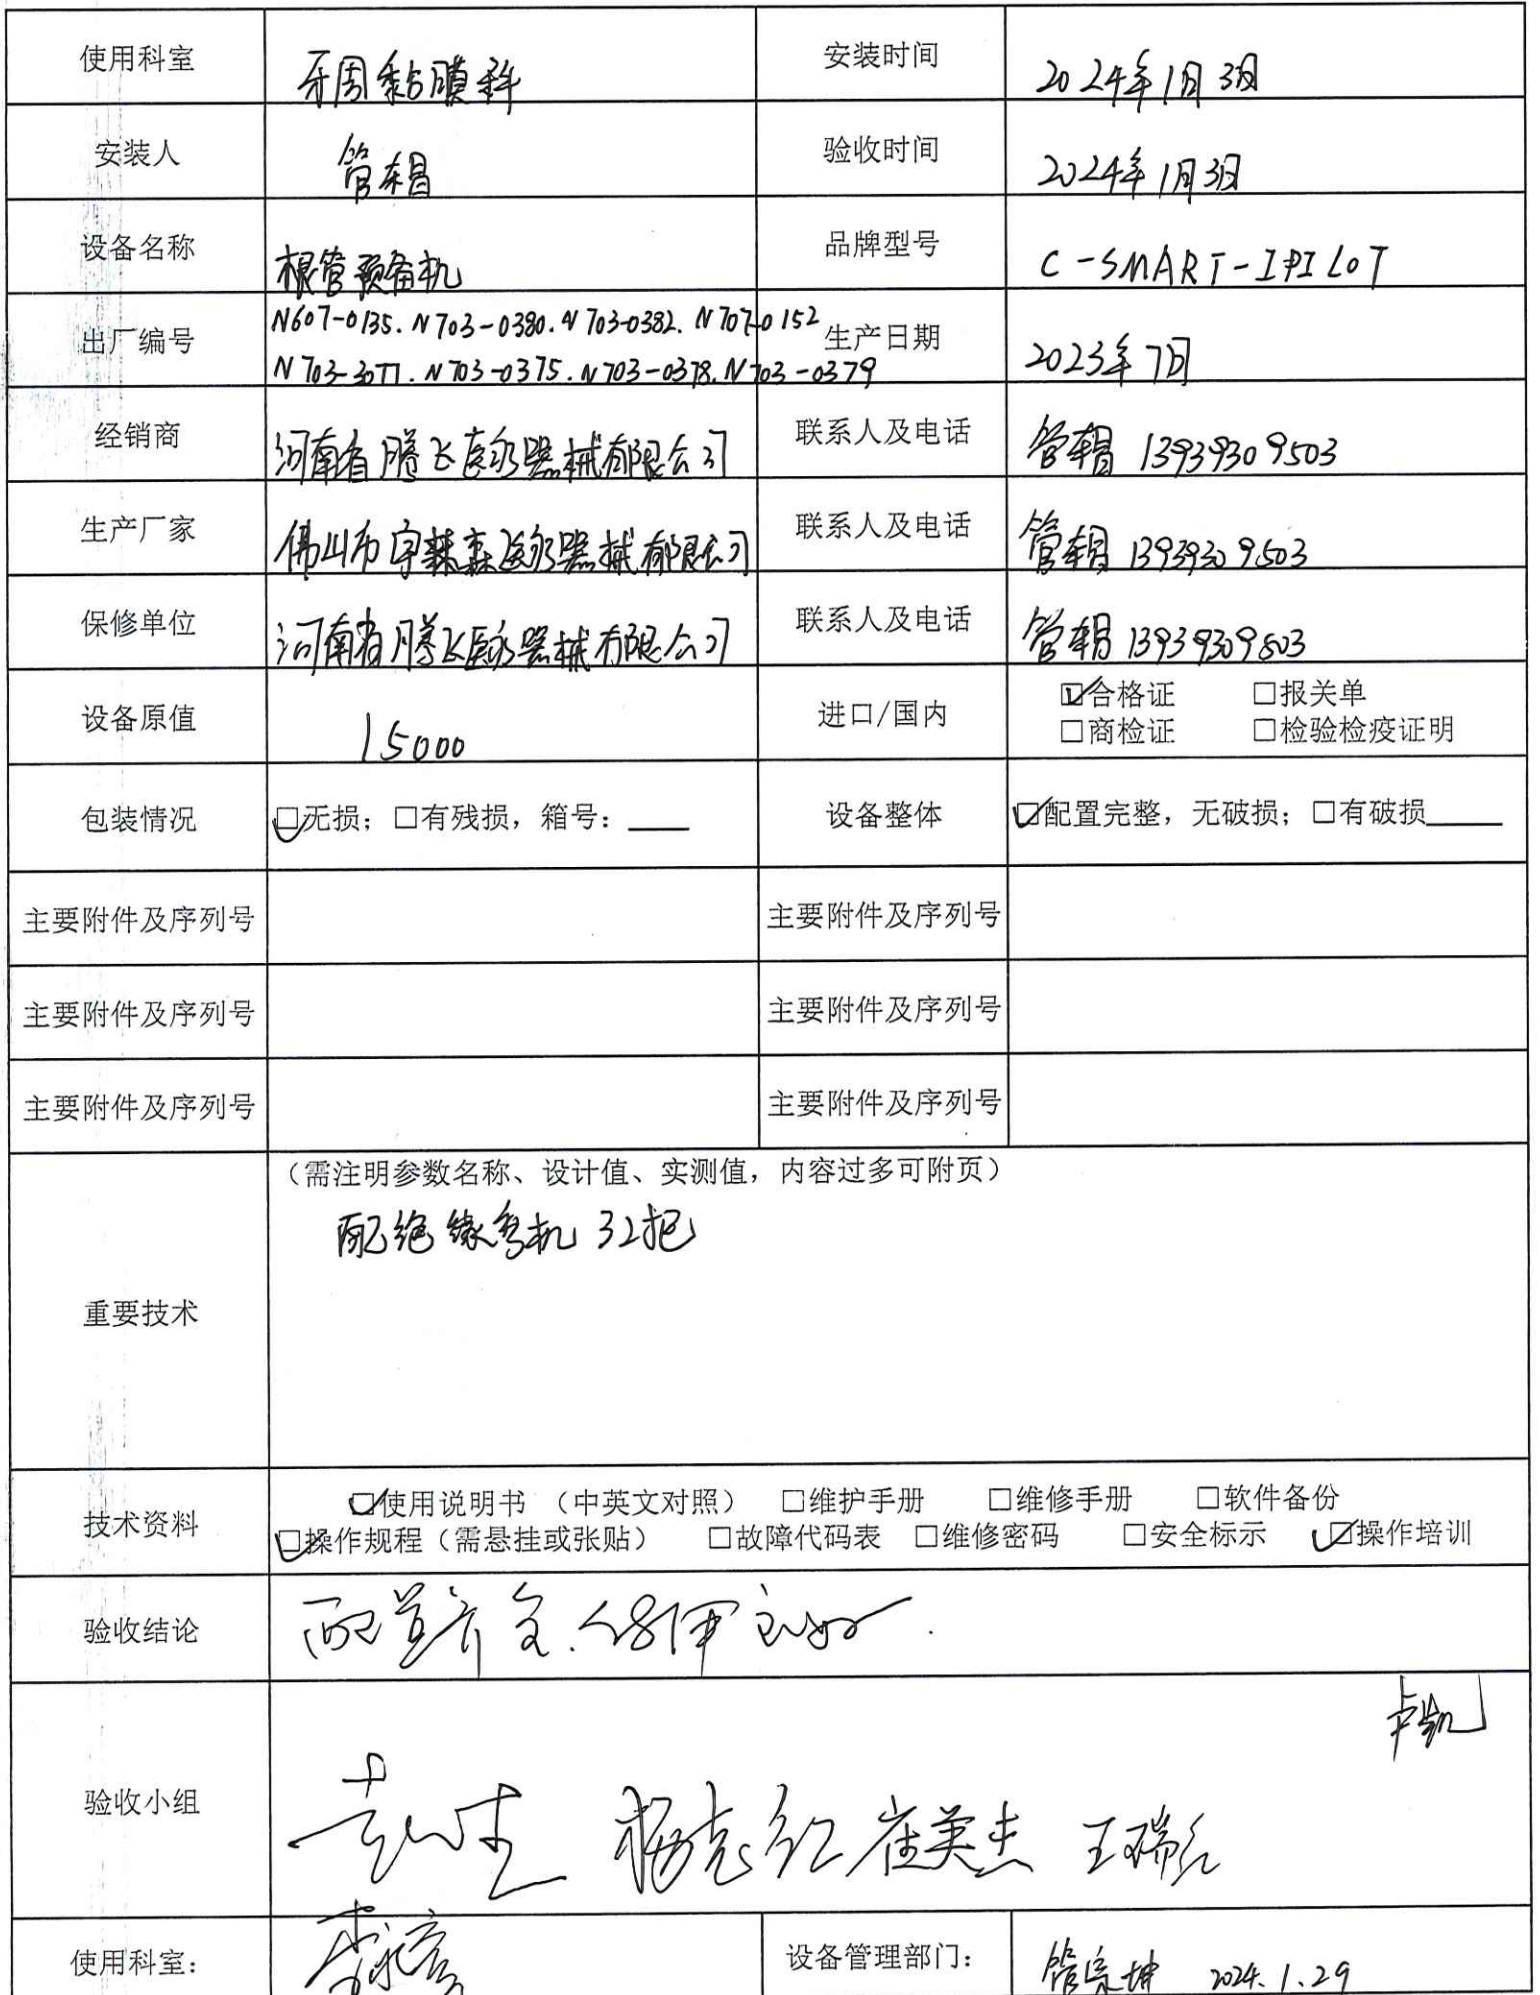 使用科室 牙周黏膜科 安装时间 2024年1月3日
安装人 管辑 验收时间 2024年1月3日
设备名称 根管预备机 品牌型号 C-SMART-IPILOT
出厂编号 N607-0135. N703-0380. N703-0382. N707-0152 生产日期 2023年7月
N703-0375. N703-0378. N703-0379
经销商 河南省腾飞医疗器械有限公司 联系人及电话 管辑 13939309503
生产厂家 佛山市宇森医疗器械有限公司 联系人及电话 管辑 13939309503
保修单位 河南省腾飞医疗器械有限公司 联系人及电话 管辑 13939309503
设备原值 15000 进口/国内 ☑合格证 □报关单
□商检证 □检验检疫证明
包装情况 ☑无损；□有残损，箱号：____ 设备整体 ☑配置完整，无破损；□有破损_____
主要附件及序列号 主要附件及序列号
主要附件及序列号 主要附件及序列号
主要附件及序列号 主要附件及序列号
重要技术 （需注明参数名称、设计值、实测值，内容过多可附页）
配绝缘弯机 32把
技术资料 ☑使用说明书 （中英文对照） □维护手册 □维修手册 □软件备份
☑操作规程（需悬挂或张贴） □故障代码表 □维修密码 □安全标示 ☑操作培训
验收结论 配置齐全.使用良好.
卢凯
验收小组 杨克红 崔美杰 王瑞红
使用科室： 设备管理部门： 管宗坤 2024.1.29